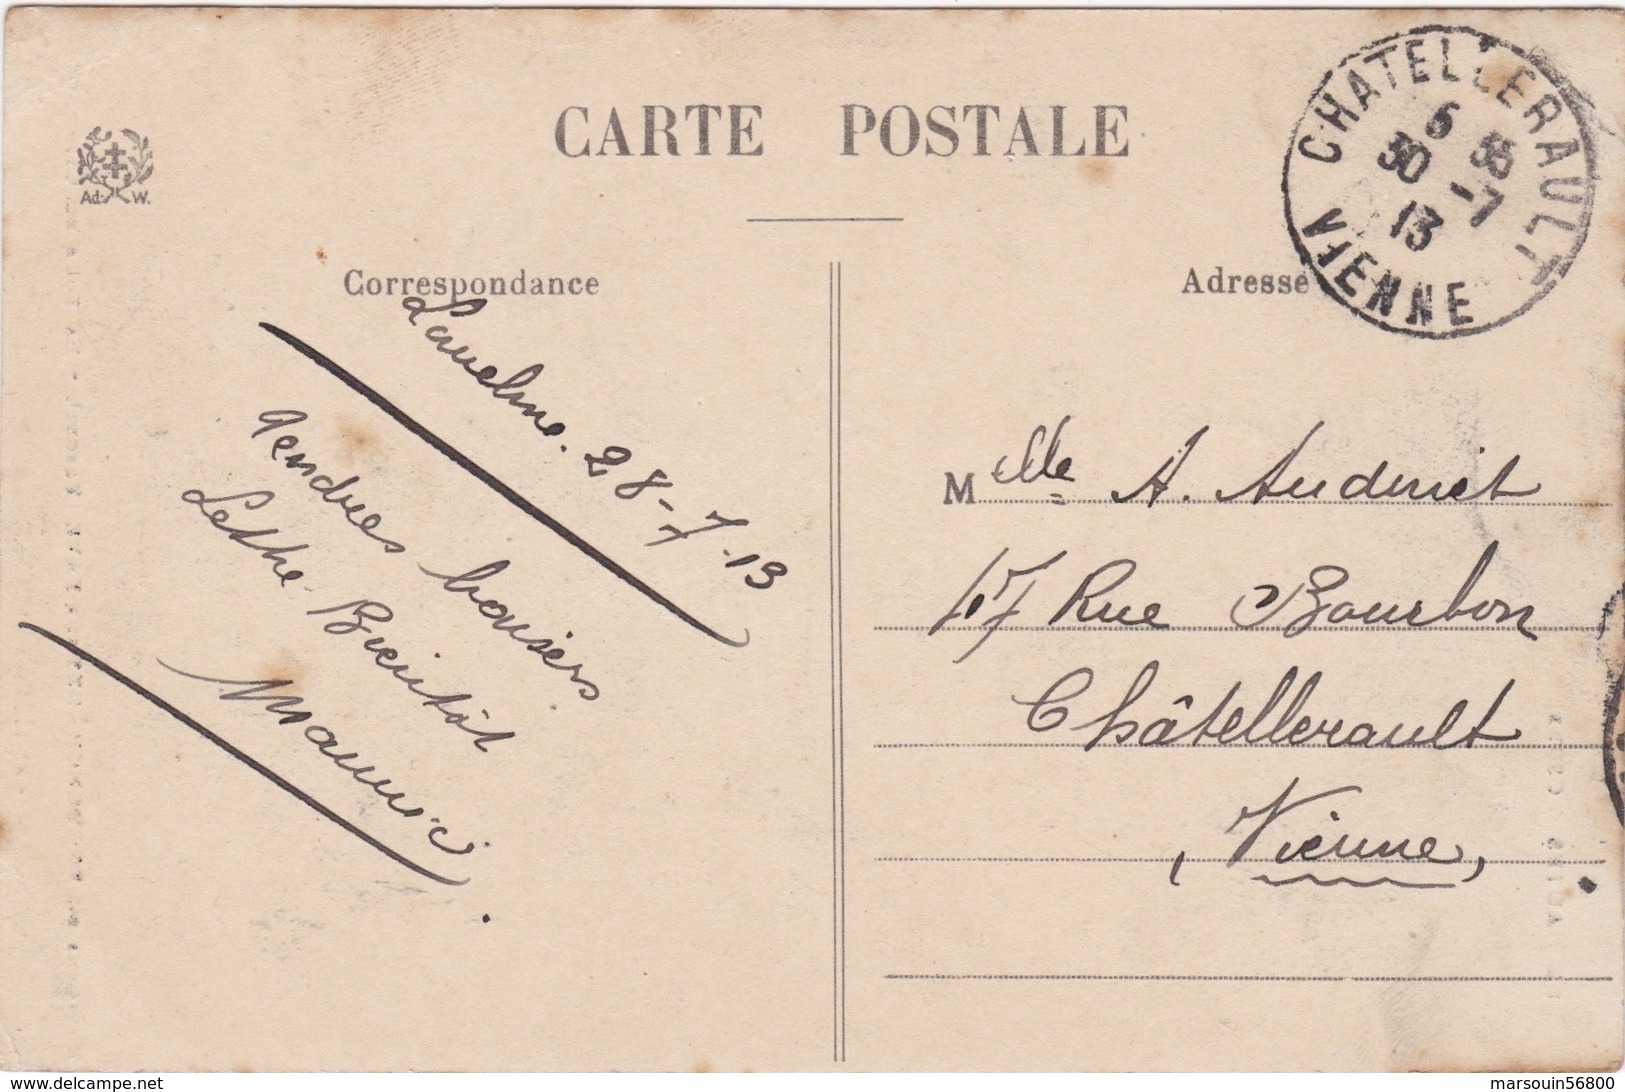 CARTE POSTALE
Ad. W.
Correspondance
Laveline. 28-7-13
Tendres baisers
Lettre Bientôt
Maurice
Adresse
CHATELLERAULT
6 35
30 -7
13
VIENNE
Melle A. Audinet
17 Rue Bourbon
Châtellerault
, Vienne,
www.delcampe.net
marsouin56800